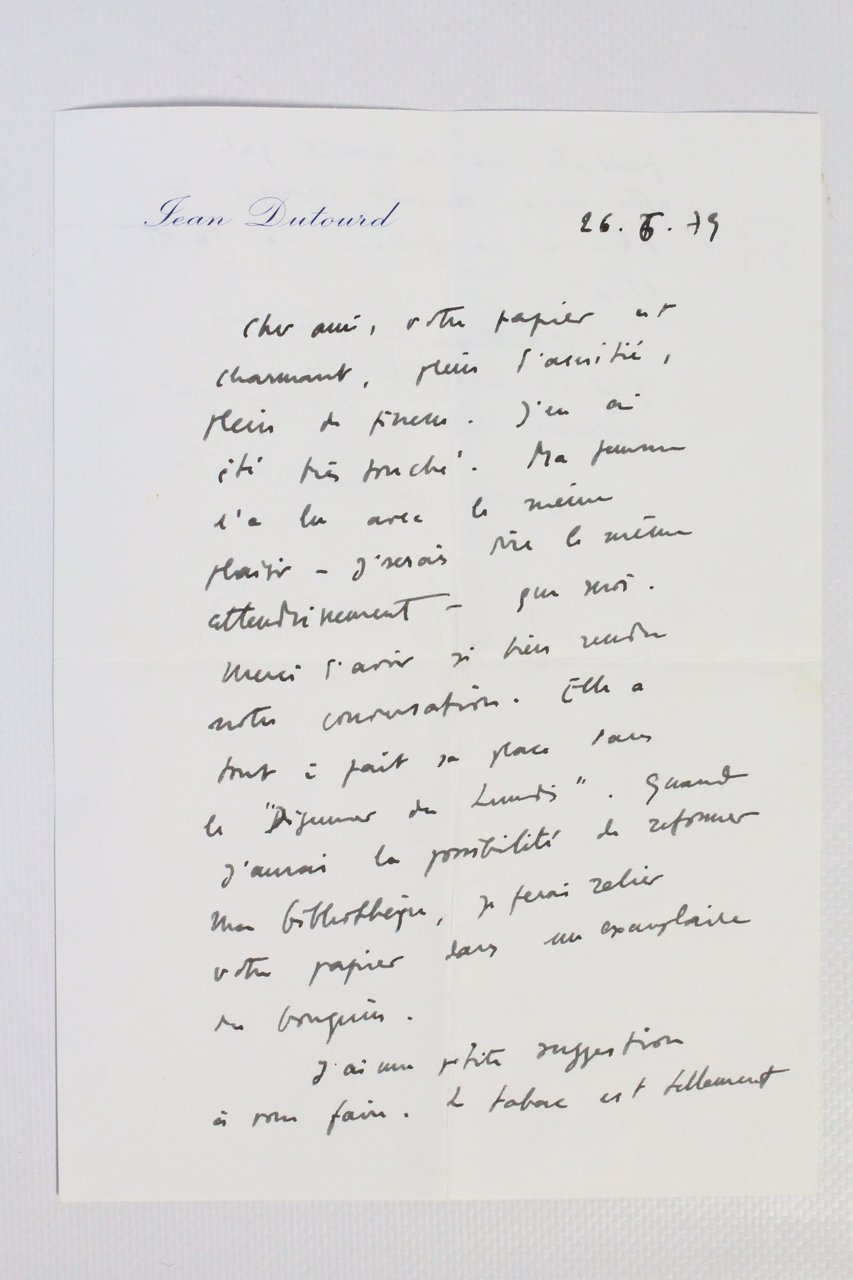 Jean Dutourd
26. 6. 79
Cher ami, votre papier est
charmant, plein d'amitié,
plein de finesse. J'en ai
été très touché. Ma femme
l'a lu avec le même
plaisir – j'oserais dire le même
attendrissement – que moi.
Merci d'avoir si bien rendu
notre conversation. Elle a
tout à fait sa place dans
le " du Lundi". Quand
j'aurai la possibilité de reformer
ma bibliothèque, je ferai relier
votre papier dans un exemplaire
du bouquin.
J'ai une petite suggestion
à vous faire. Le tabac est tellement